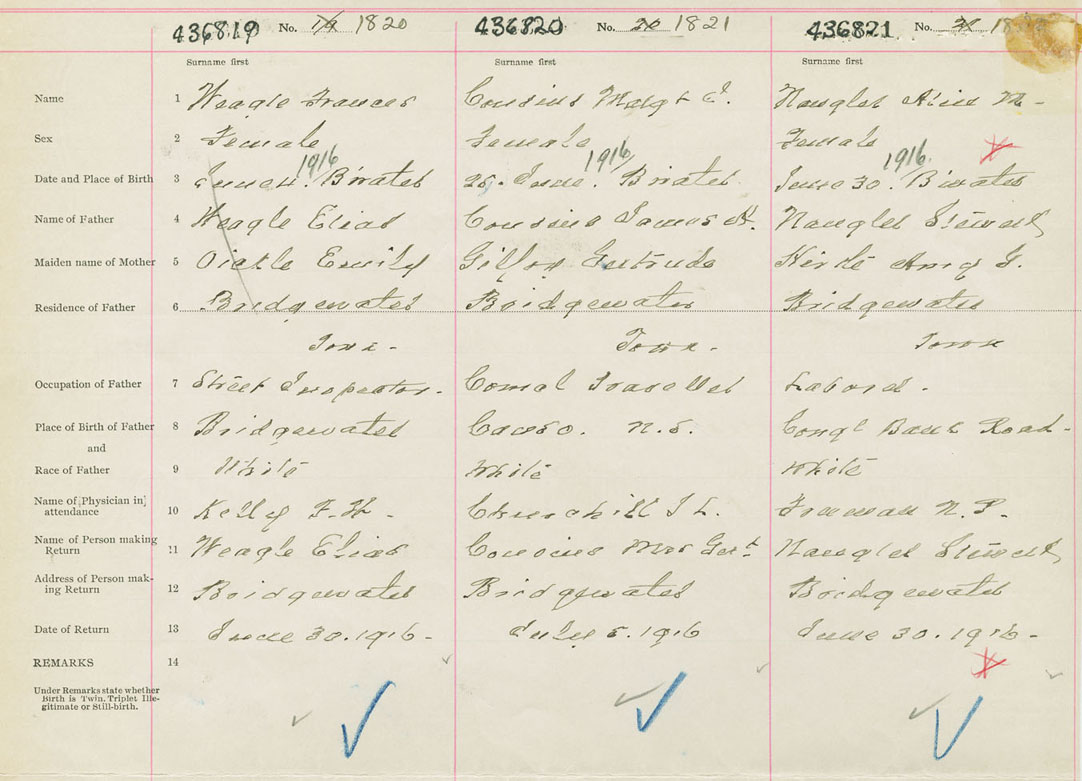 436819 No. 19 1820 436820 No. 20 1821 436821 No. 21
Surname first Surname first Surname first
Name 1 Weagle Frances Cousins Margt E. Naugler M -
Sex 2 Female Female Female
1916 1916 1916
Date and Place of Birth 3 June Bwater 25. June. Bwater June 30. Bwater
Name of Father 4 Weagle Elias Cousins James H. Naugler Stewart
Maiden name of Mother 5 Oickle Emily Gertrude Amy G.
Residence of Father 6 Bridgewater Bridgewater Bridgewater
Town - Town - Town
Occupation of Father 7 Street Inspector - Comal Traveller Laborer -
Place of Birth of Father 8 Bridgewater Canso. N.S. Bank Road -
and
Race of Father 9 White White White
Name of Physician in
attendance 10 Kelly F. W - Churchill J L. Freeman N. P.
Name of Person making
Return 11 Weagle Elias Cousins Mrs Gert Naugler Stewart
Address of Person mak-
ing Return 12 Bridgewater Bridgewater Bridgewater
Date of Return 13 June 30. 1916 - July 5. 1916 June 30. 1916 -
REMARKS 14
Under Remarks state whether
Birth is Twin, Triplet Ille-
gitimate or Still-birth.